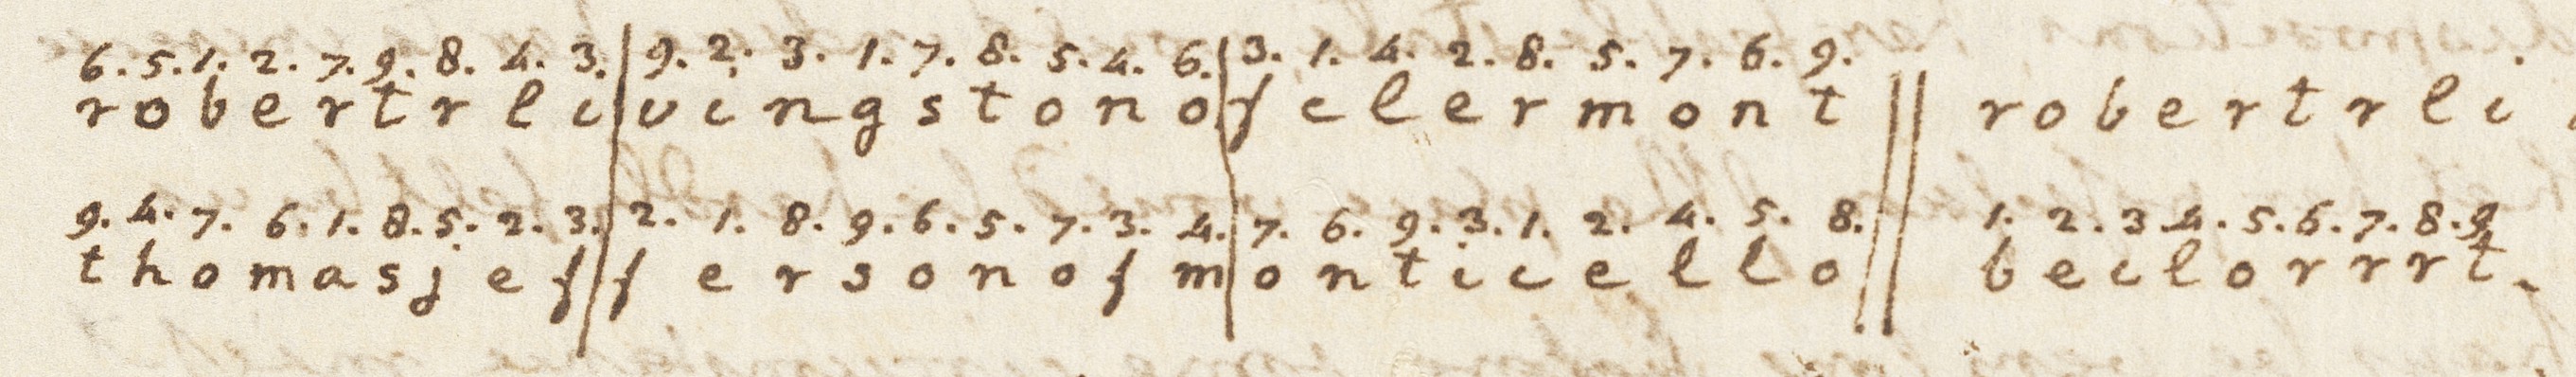 6. 5. 1. 2. 7. 9. 8. 4. 3. | 9. 2. 3. 1. 7. 8. 5. 4. 6. | 3. 1. 4. 2. 8. 5. 7. 6. 9.
r o b e r t r l i | v i n g s t o n o | f c l e r m o n t || r o b e r t r l i
9. 4. 7. 6. 1. 8. 5. 2. 3. | 2. 1. 8. 9. 6. 5. 7. 3. 4. | 7. 6. 9. 3. 1. 2. 4. 5. 8. || 1. 2. 3. 4. 5. 6. 7. 8. 9
t h o m a s j e f | f e r s o n o f m | o n t i c e l l o || b e i l o r r r t